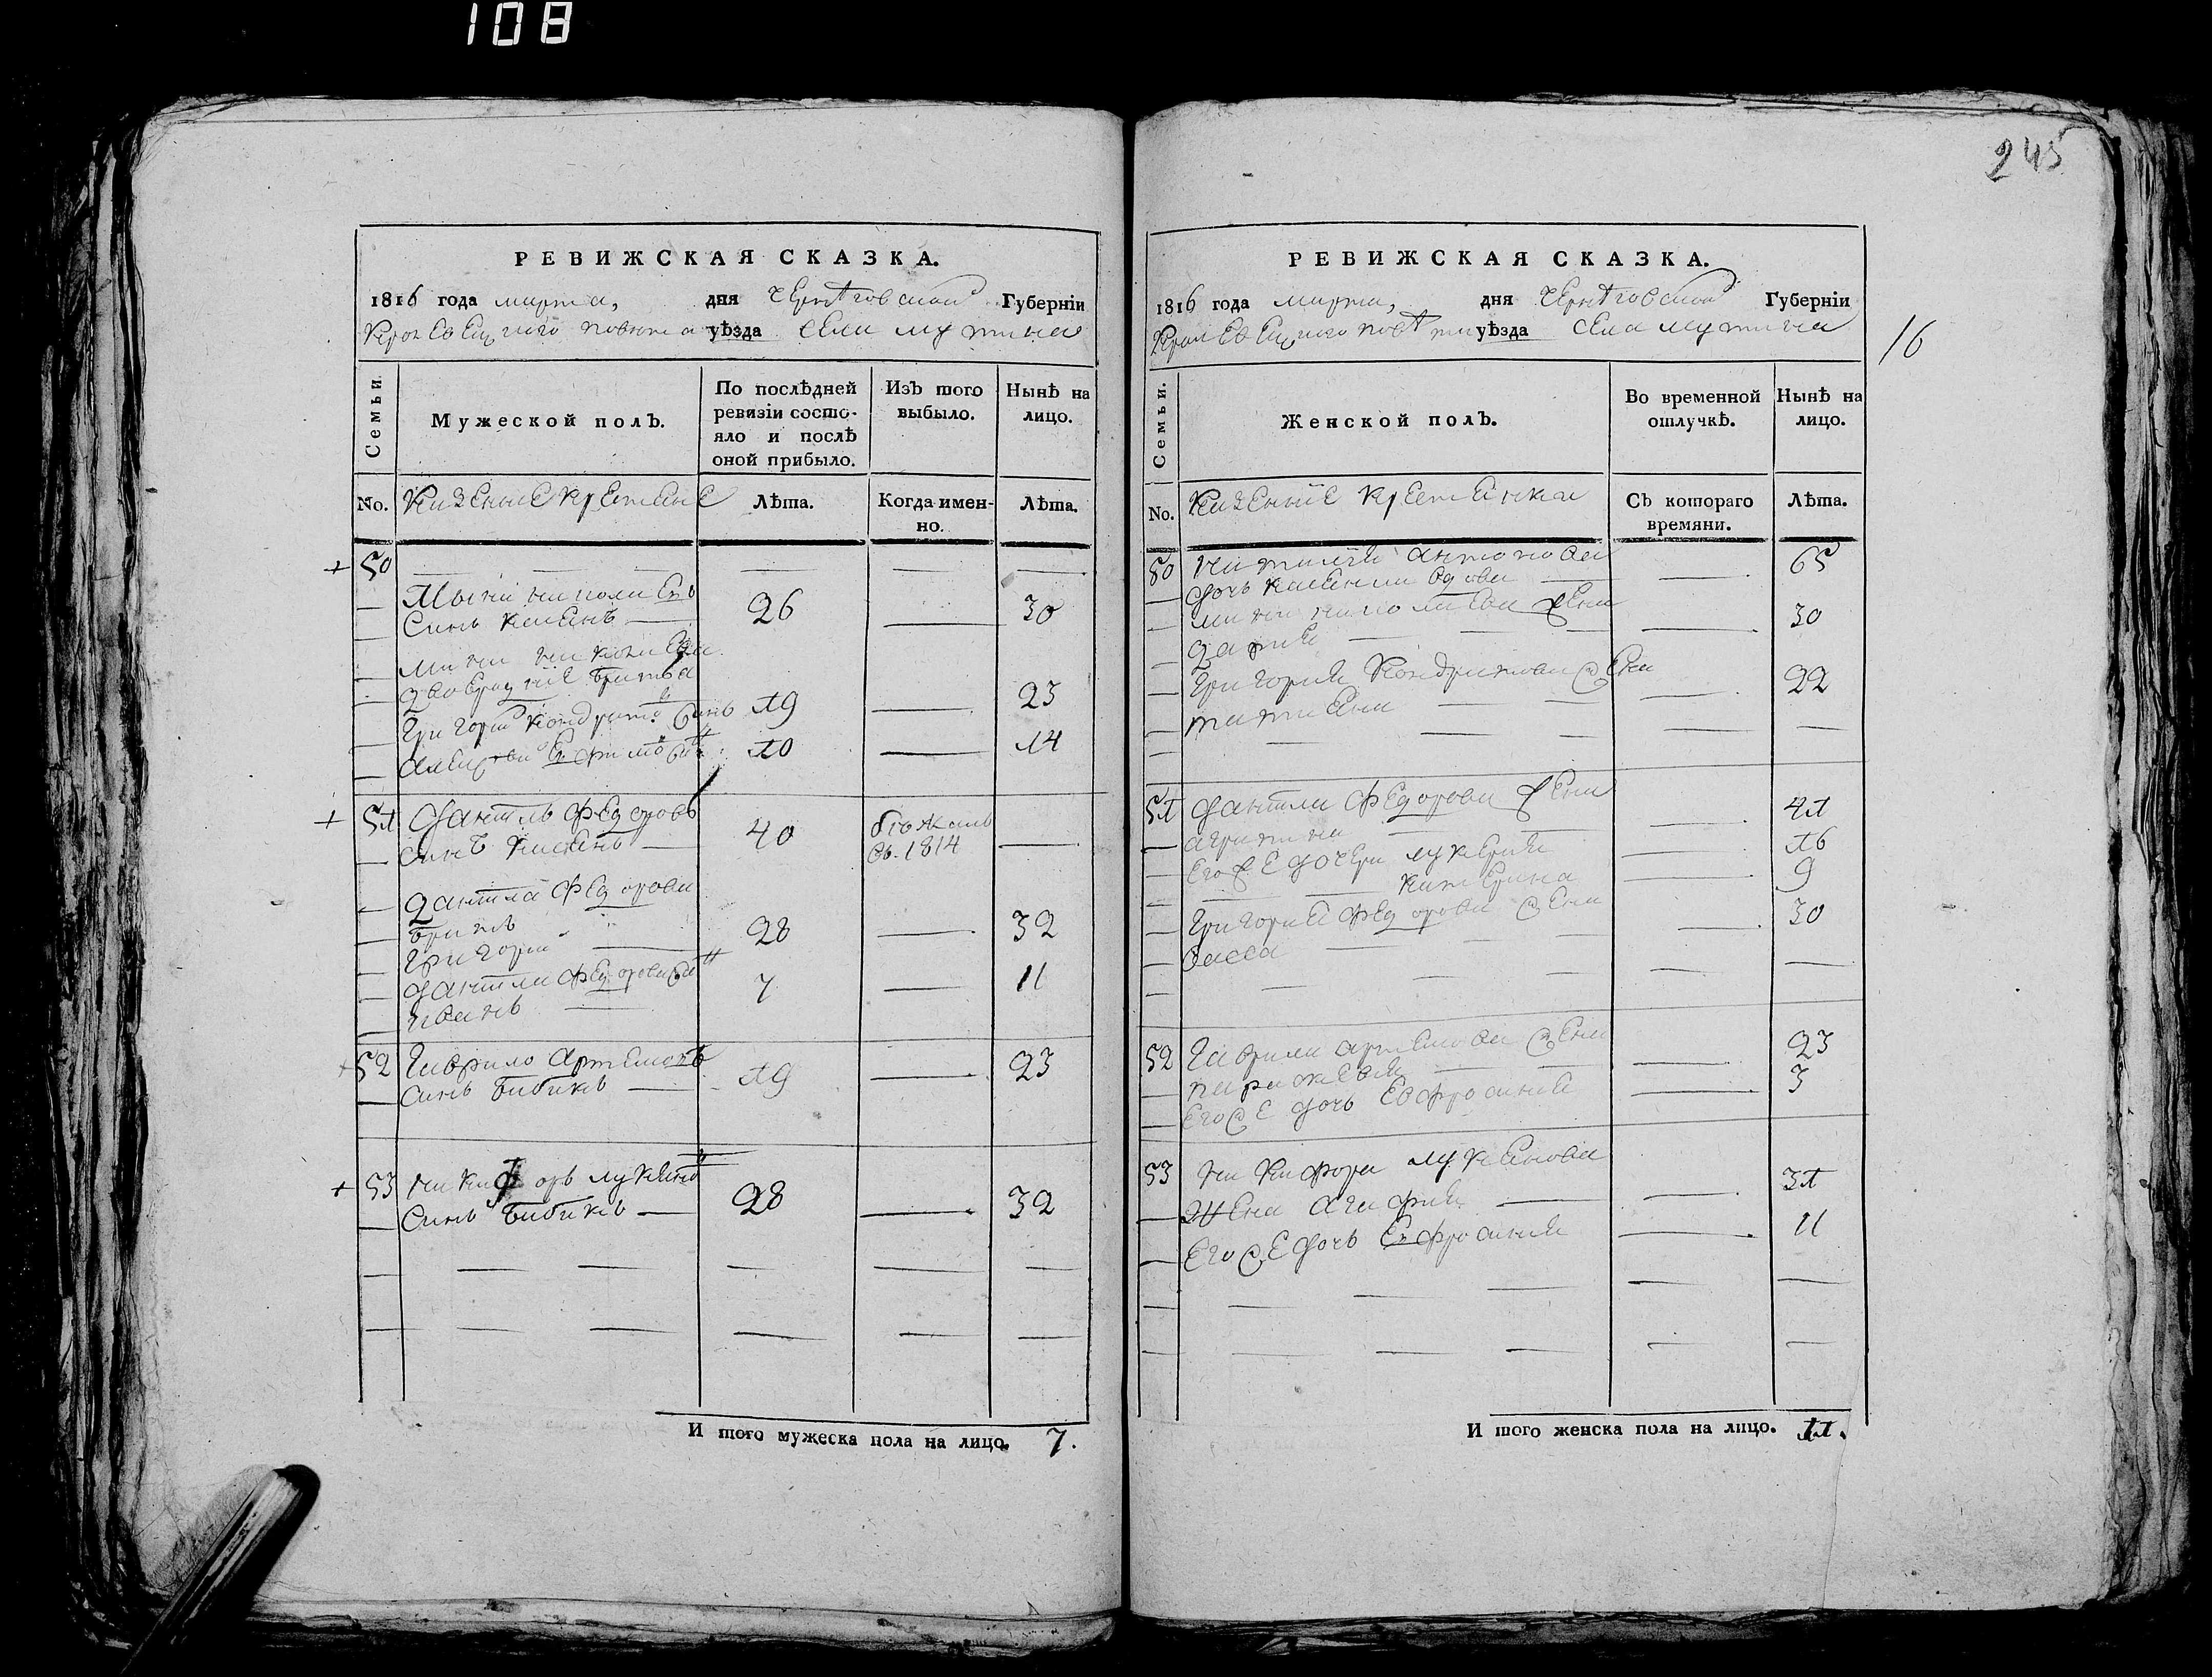 108
245
РЕВИЖСКАЯ СКАЗКА.
1816 года марта, дня Черниговской Губерніи
Кролевецкого повета уѣзда села мутина
Семьи.
Мужеской полъ.
По послѣдней ревизіи состояло и послѣ оной прибыло.
Изъ того выбыло.
Нынѣ на лицо.
No.
Казенние крестяне
Лѣта.
Когда именно.
Лѣта.
50
николаевъ
синъ 26 30
николаева
двоеродніе братья
Григорій кондрато синъ 19 23
10 14
51 Данило Федоровъ
синъ 40 бежалъ
въ 1814
Данила Федорова
братъ
Григорій 28 32
Данила Федорова
иванъ 7 11
52 Гаврило Артемовъ
синъ бибикъ 19 23
53 никифоръ лукянов
Синъ бибикъ 28 32
И того мужеска пола на лицо. 7.
РЕВИЖСКАЯ СКАЗКА.
1816 года марта, дня Черниговской Губерніи
Кролевецкого повета уѣзда села мутина
16
Семьи.
Женской полъ.
Во временной отлучкѣ.
Нынѣ на лицо.
No.
Казенние крестянки
Съ котораго времяни.
Лѣта.
50 наталія антонова 65
дочь
николаева жена
дарія 30
Григорія Кондратова жена
татияна 22
51 Данила Федорова жена
агрипина 41
Его же дочери лукерия 16
катерина 9
Григория Федорова жена
васса 30
52 Гаврила артемова жена
парасковия 23
Его же дочь Евфросиния 3
53 никифора лукянова
жена агафия 31
Его же дочь Евфросиния 11
И того женска пола на лицо. 11.